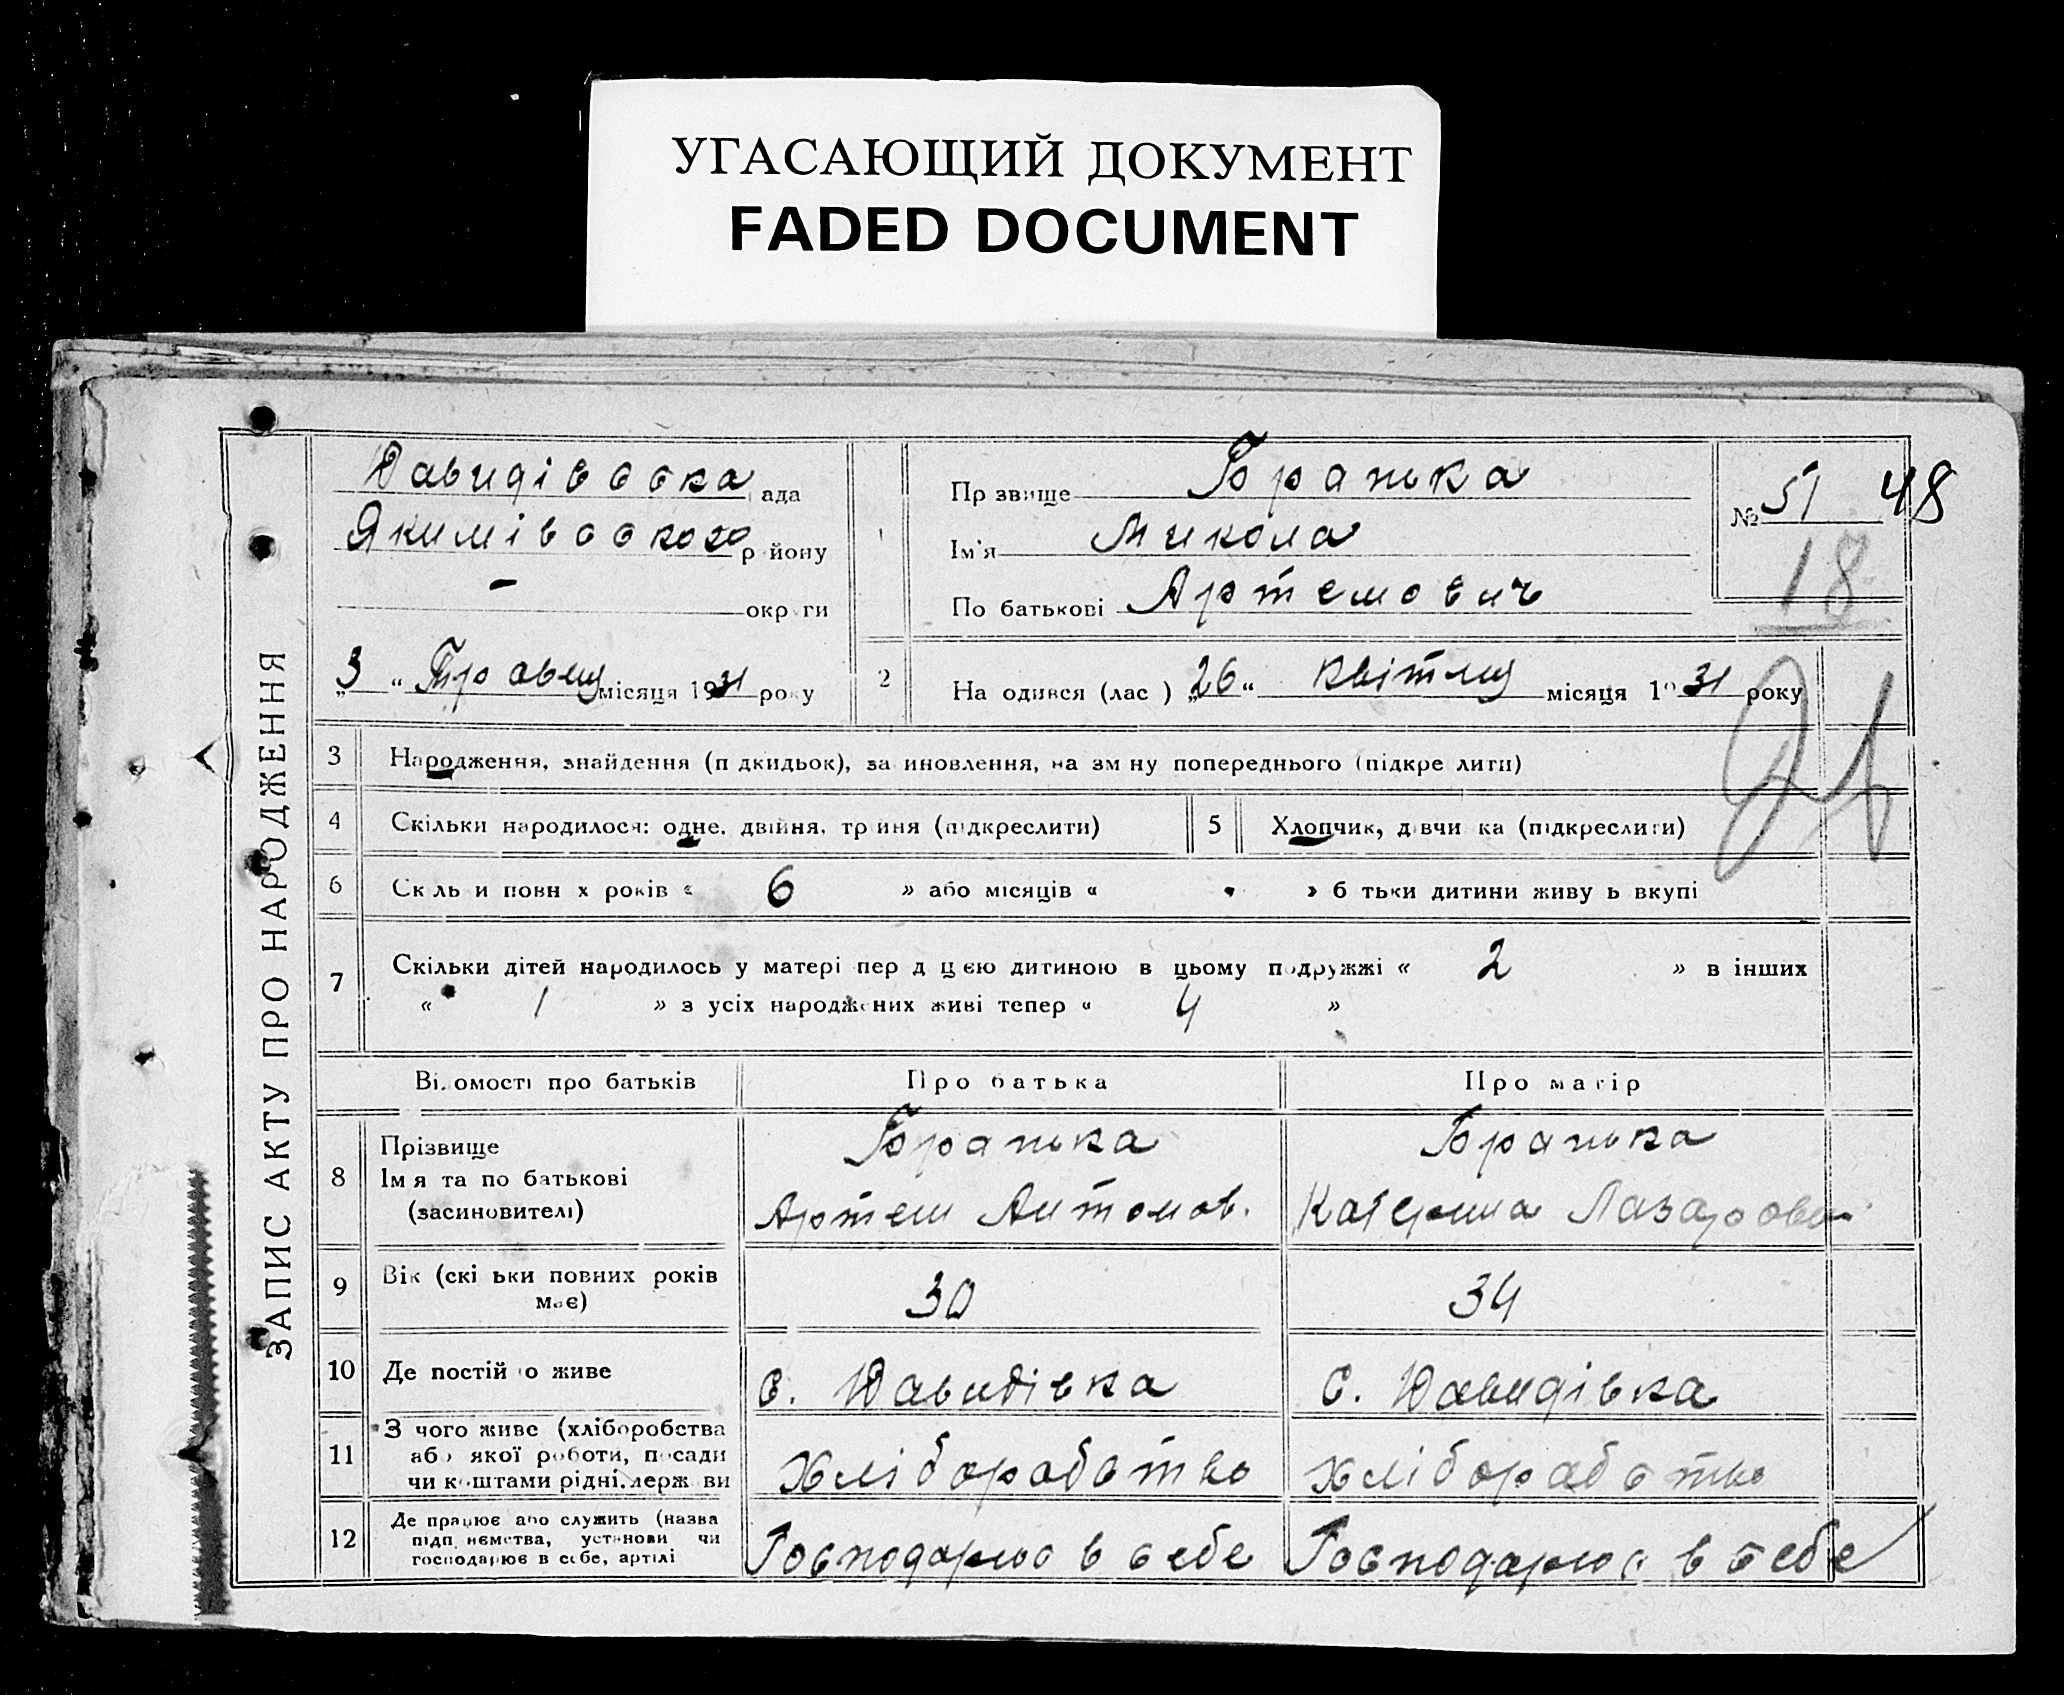 УГАСАЮЩИЙ ДОКУМЕНТ
FADED DOCUMENT
ЗАПИС АКТУ ПРО НАРОДЖЕННЯ
Давидівська ада
Якимівського р йону
– окр ги
„3“ Травня місяця 1931 року
1
Пр звище Бранька
Ім'я Микола
По батькові Артемович
№ 51 48
18
2 На одився (лас ) „26“ квітня місяця 1931 року
3 Народження, знайдення (п дкидьок), за иновлення, на зм ну попереднього (підкре лити)
4 Скільки народилося: одне, двійня, тр йня (підкреслити) 5 Хлопчик, дівчи ка (підкреслити)
6 Ск ль и повн х років « 6 » або місяців « » б тьки дитини живу ь вкупі
7 Скільки дітей народилось у матері пер д цією дитиною в цьому подружжі « 2 » в інших
« 1 » з усіх народжених живі тепер « 4 »
Ві омості про батьків Про батька Про матір
8 Прізвище Ім я та по батькові (засиновителі)
Бранька Бранька
Артем Антонов. Катерина Лазаровна
9 Вік (скі ьки повних років має) 30 34
10 Де постій о живе с. Давидівка с. Давидівка
11 З чого живе (хліборобства
або якої роботи, посади
чи коштами рідні, держ ви
хліборобство хліборобство
12 Де працює або служить (назва
підп иємства, установи чи
господарює в себе, артілі
Господарює в себе Господарює в себе